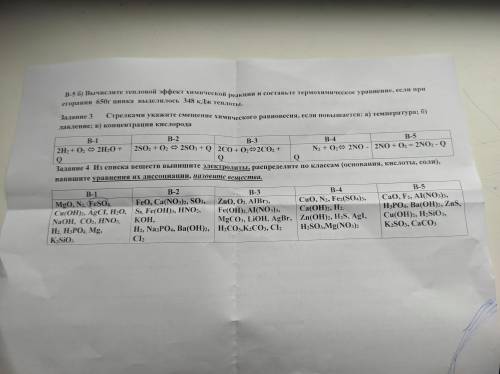 В-5 б) Вычислите тепловой эффект химической реакции и составьте термохимическое уравнение, если при
сгорании 650г цинка выделилось 348 кДж теплоты.
Задание 3 Стрелками укажите смещение химического равновесия, если повышается: а) температура; б)
давление; в) концентрация кислорода
В-1 В-2 В-3 В-4 В-5
2H₂ + O₂ ⇔ 2H₂O + Q
2SO₂ + O₂ ⇔ 2SO₃ + Q
2CO + O₂⇔2CO₂ + Q
N₂ + O₂⇔ 2NO - Q
2NO + O₂ = 2NO₂ - Q
Задание 4 Из списка веществ выпишите электролиты, распределите по классам (основания, кислоты, соли),
напишите уравнения их диссоциации, назовите вещества.
В-1
MgO, N₂, FeSO₄,
Cu(OH)₂, AgCl, H₂O,
NaOH, CO₂, HNO₃,
H₂, H₃PO₄, Mg,
K₂SiO₃
В-2
FeO, Ca(NO₃)₂, SO₃,
S₈, Fe(OH)₃, HNO₂,
KOH,
H₂, Na₃PO₄, Ba(OH)₂,
Cl₂
В-3
ZnO, O₂, AlBr₃,
Fe(OH)₂, Al(NO₃)₃,
MgCO₃, LiOH, AgBr,
H₂CO₃,K₂CO₃, Cl₂
В-4
CuO, N₂, Fe₂(SO₄)₃,
Ca(OH)₂, H₂,
Zn(OH)₂, H₂S, AgI,
H₂SO₄,Mg(NO₃)₂
В-5
CaO, F₂, Al(NO₃)₃,
H₃PO₄, Ba(OH)₂, ZnS,
Cu(OH)₂, H₂SiO₃,
K₂SO₃, CaCO₃